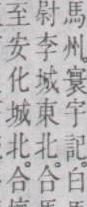 馬州。寰宇記。白
尉李城東北合
至安化城北。合